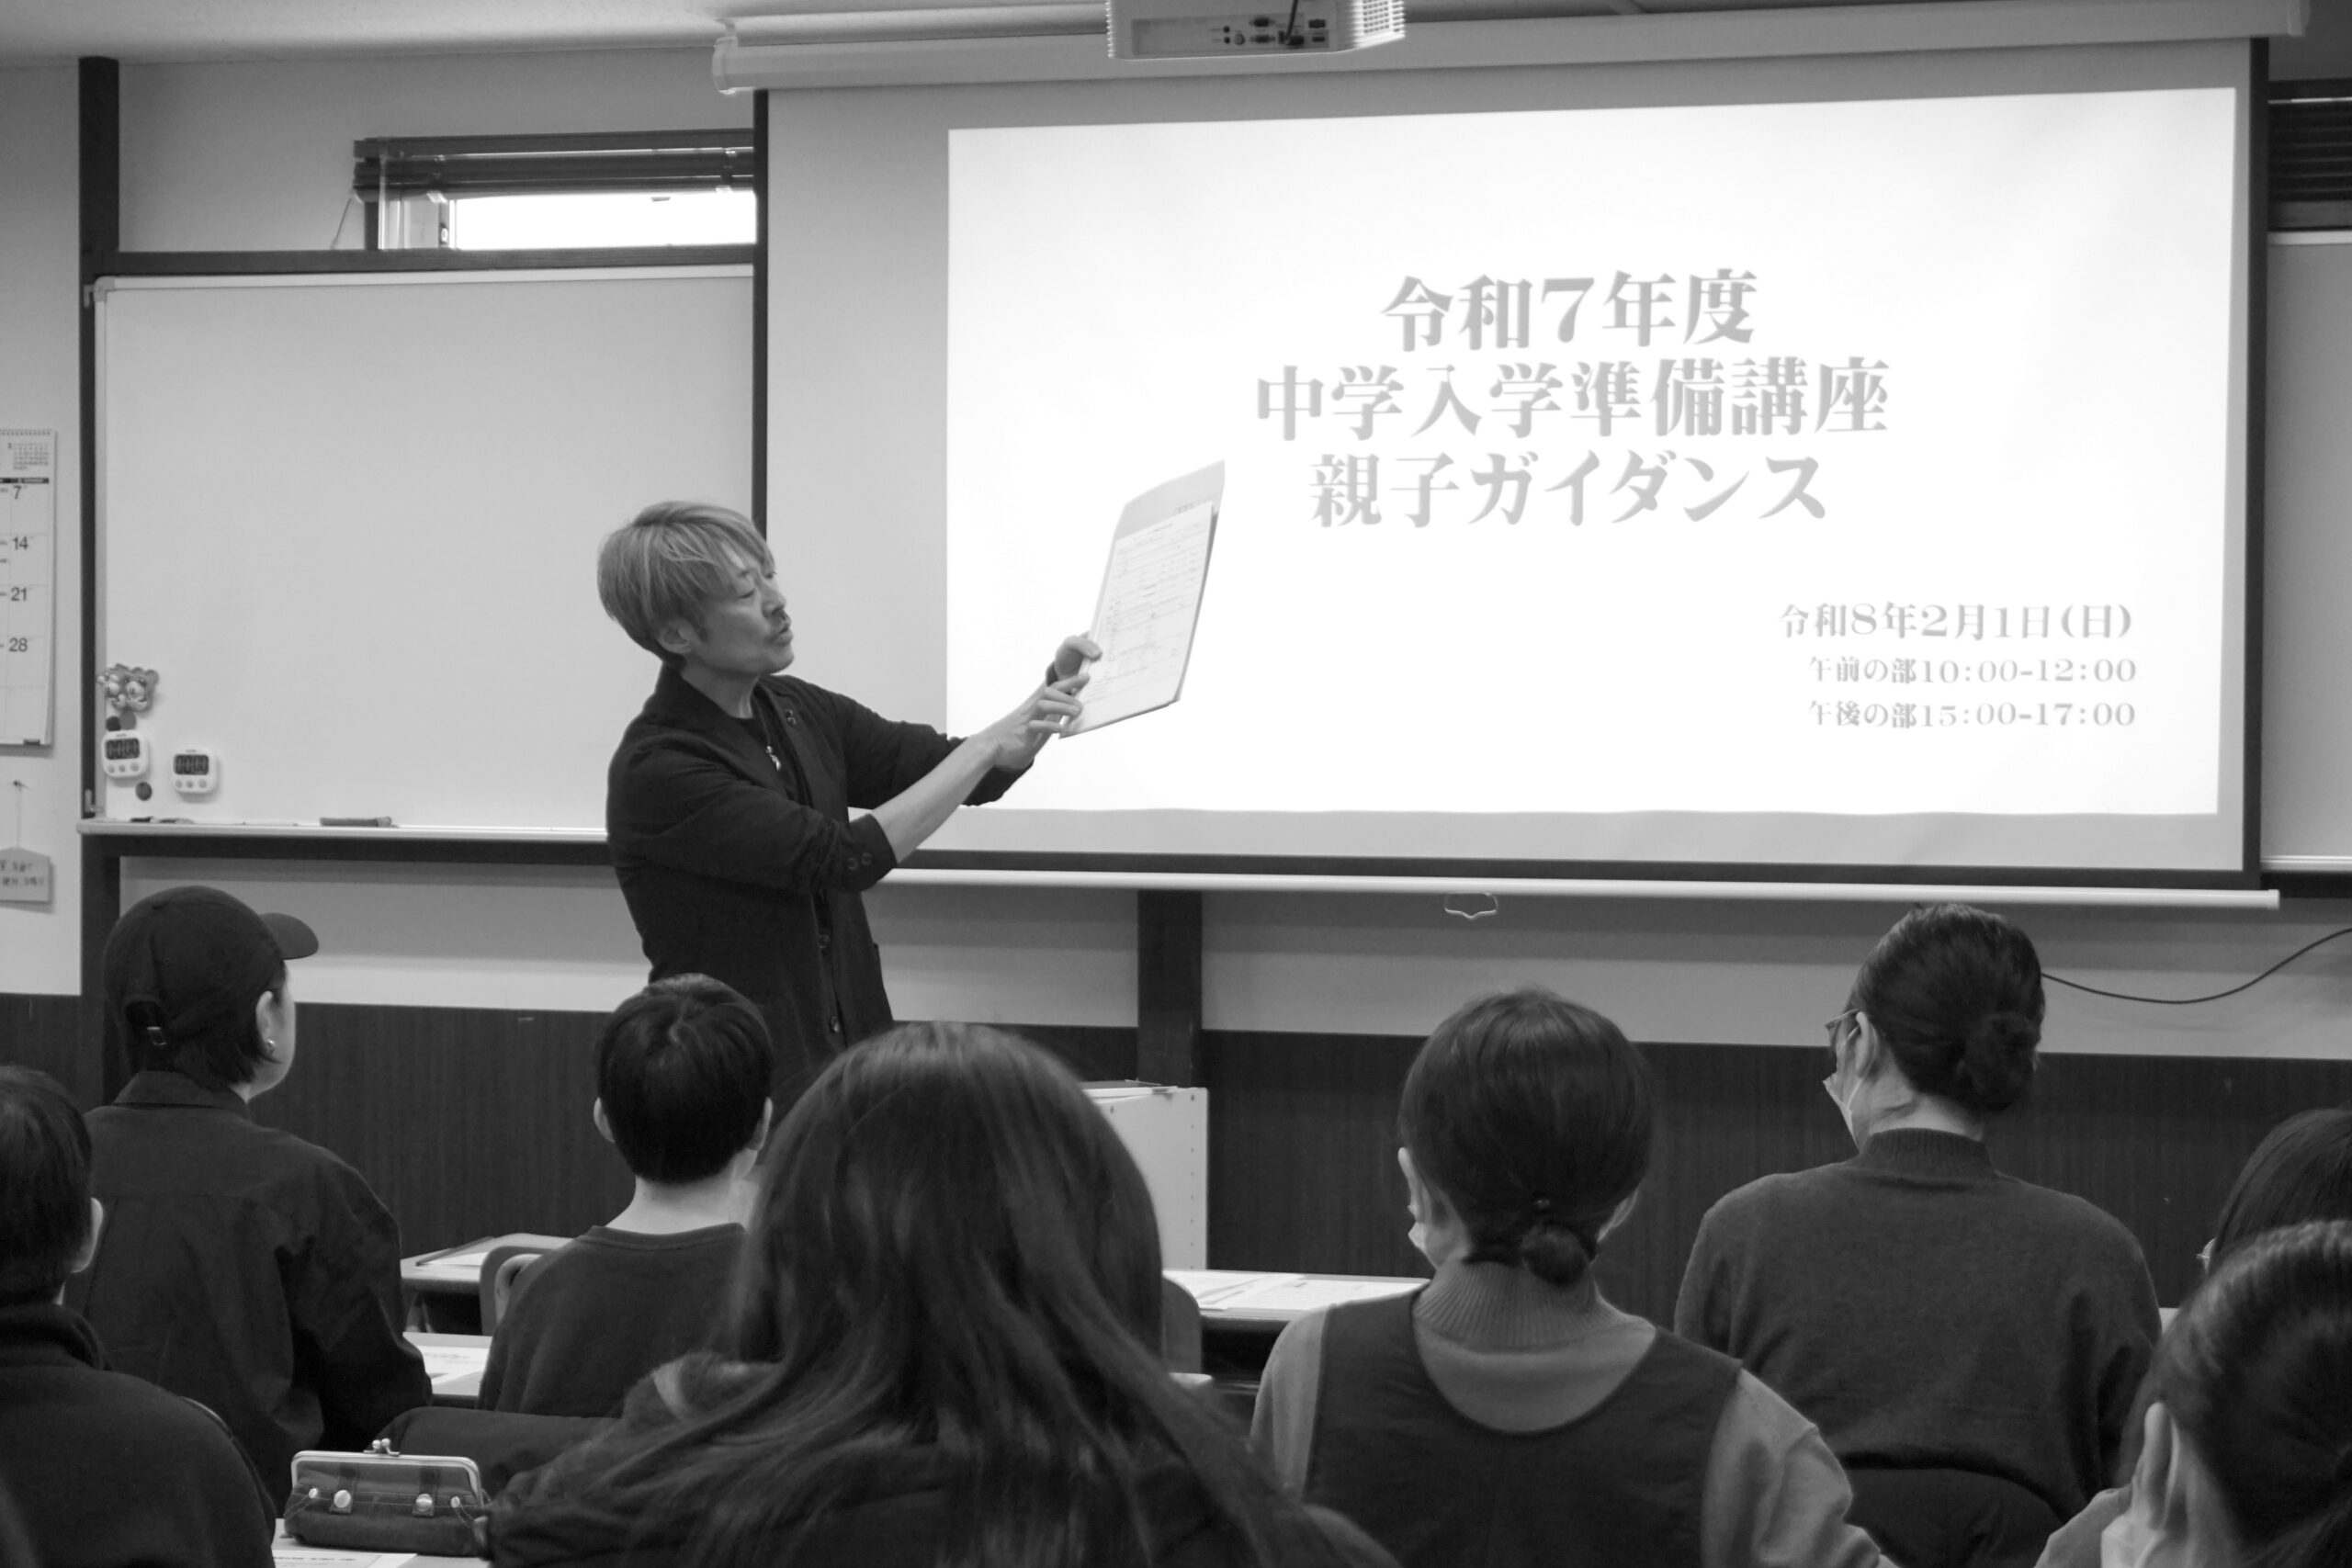 令和7年度
中学入学準備講座
親子ガイダンス
令和8年2月1日(日)
午前の部10:00-12:00
午後の部15:00-17:00
7
14
21
28